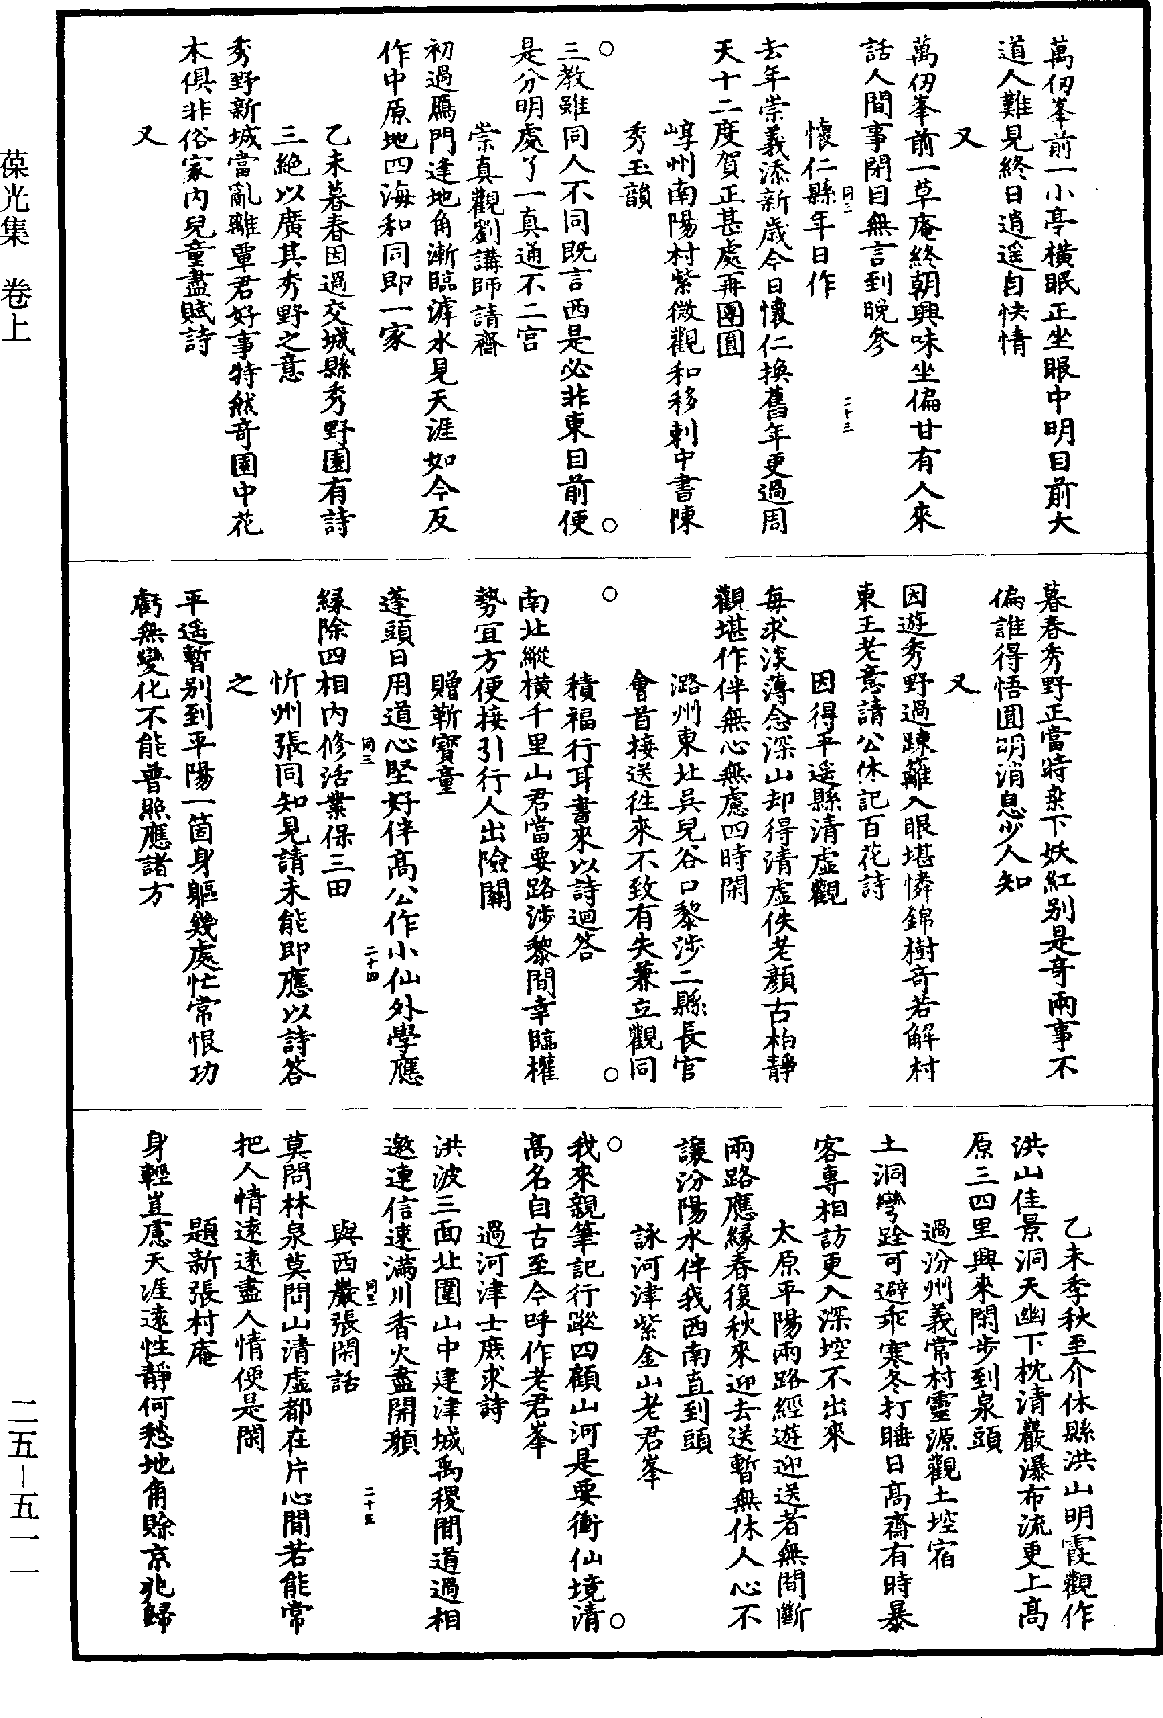 萬仞峯前一小亭橫眠正坐眼中明目前大
道人難見終日逍遥自快情
又
萬仞峯前一草庵終朝興味坐偏甘有人來
話人間事閉目無言到晚參
同二
二十三
懷仁縣年日作
去年崇義添新歲今日懷仁換舊年更過周
天十二度賀正甚處再團圓
崞州南陽村紫微觀和移剌中書陳
秀玉韻
三教雖同人不同既言西是必非東目前便
是分明處了一真通不二宫
崇真觀劉講師請齋
初過鴈門逢地角漸臨滹水見天涯如今反
作中原地四海和同即一家
乙未暮春因過交城縣秀野園有詩
三絶以廣其秀野之意
秀野新城當亂離覃君好事特然竒園中花
木俱非俗家内兒童盡賦詩
又
暮春秀野正當時桒下妖紅别是竒兩事不
偏誰得悟圓明消息少人知
又
因遊秀野過踈籬入眼堪憐錦樹竒若解村
東王老意請公休記百花詩
因得平遥縣清虚觀
每求淡薄念深山却得清虚佚老顔古柏靜
觀堪作伴無心無慮四時閑
潞州東北吳兒谷口黎涉二縣長官
會首接送徃來不致有失兼立觀同
積福行耳書來以詩迴答
南北縱横千里山君當要路涉黎間幸臨權
勢宜方便接引行人出險關
贈靳寶童
蓬頭日用道心堅好伴髙公作小仙外學應
緣除四相内修活業保三田
同三
二十四
忻州張同知見請未能即應以詩答
之
平遥暫别到平陽一箇身軀幾處忙常恨功
虧無變化不能普照應諸方
乙未季秋至介休縣洪山明霞觀作
洪山佳景洞天幽下枕清巖瀑布流更上髙
原三四里興來閑步到泉頭
過汾州義常村靈源觀土埪宿
土洞彎跧可避乖寒冬打睡日髙齋有時暴
客專相訪更入深埪不出來
太原平陽兩路經遊迎送者無間斷
兩路應緣春復秋來迎去送暫無休人心不
讓汾陽水伴我西南直到頭
詠河津紫金山老君峯
我來親筆記行蹤四顧山河是要衝仙境清
髙名自古至今呼作老君峯
過河津士庶求詩
洪波三面北圍山中建津城禹稷間道過相
邀連信逺滿川香火盡開顔
同三
二十五
與西巖張閑話
莫問林泉莫問山清虚都在片心間若能常
把人情逺逺盡人情便是閑
題新張村庵
身輕豈慮天涯逺性靜何愁地角賒京兆歸
葆光集 卷上
二五—五一一